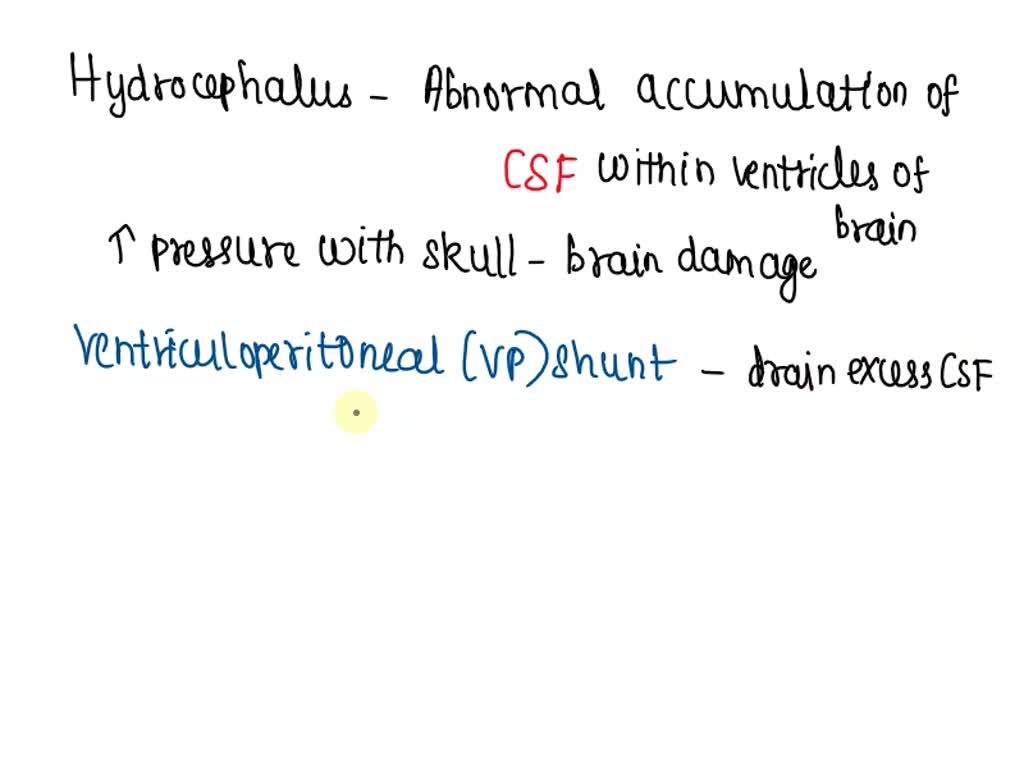 Hydrocephalus - Abnormal accumulation of
CSF within ventricles of
brain
↑ pressure with skull - brain damage
Ventriculoperitoneal (VP) shunt - drain excess CSF